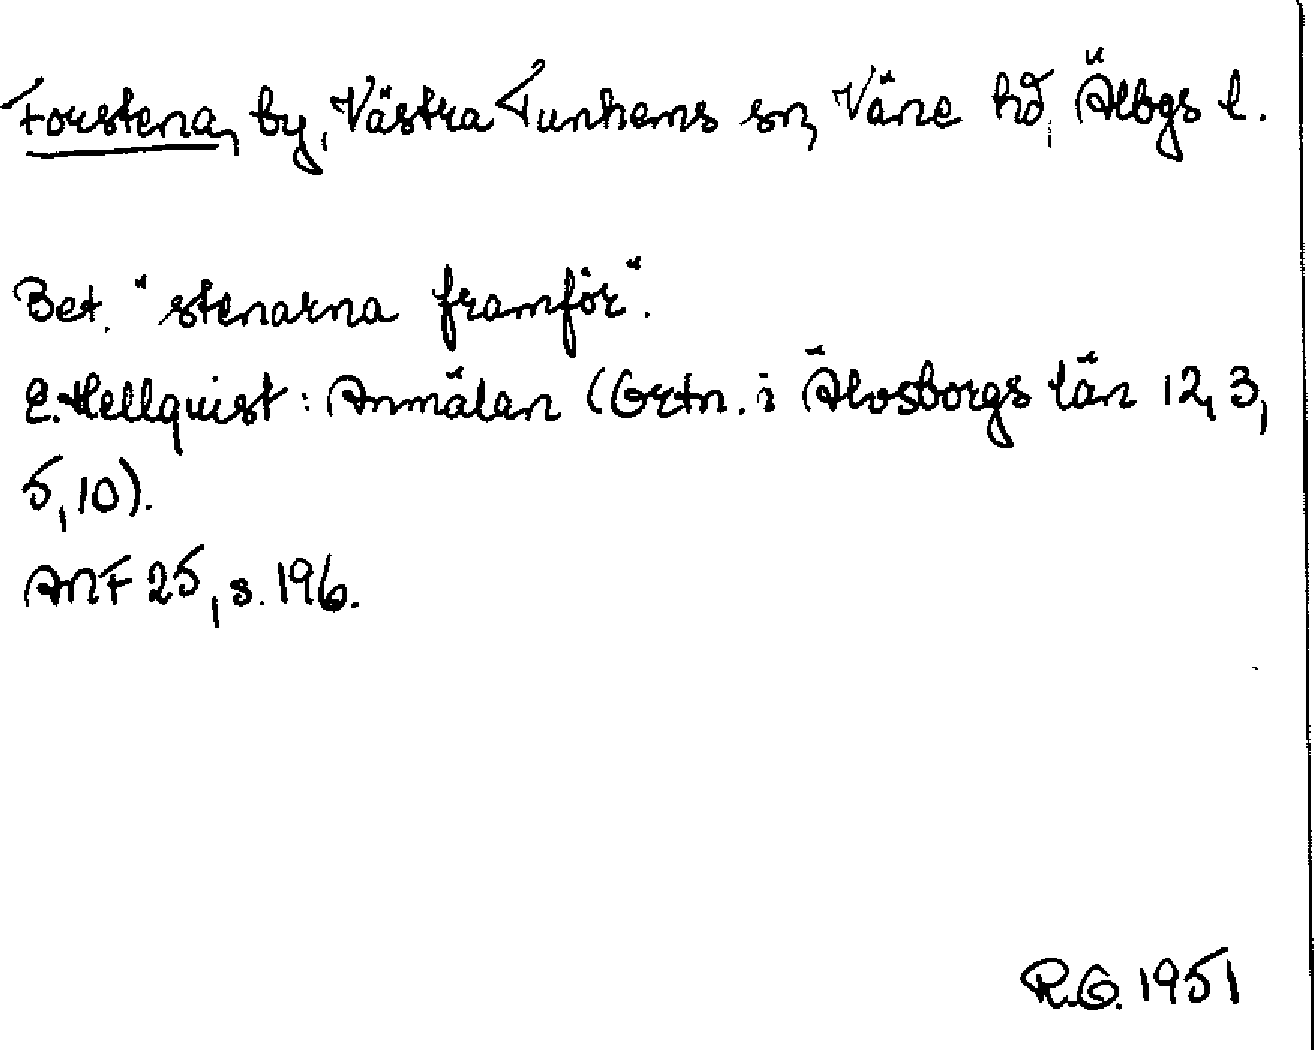 Forstena, by, Västra Tunhems sn, Väne hd, Älbgs l.
Bet. "stenarna framför".
E. Hellquist: Anmälan (Ortn. i Älvsborgs län 12, 3,
5, 10).
ANF 25, s. 196.
R.G. 1951